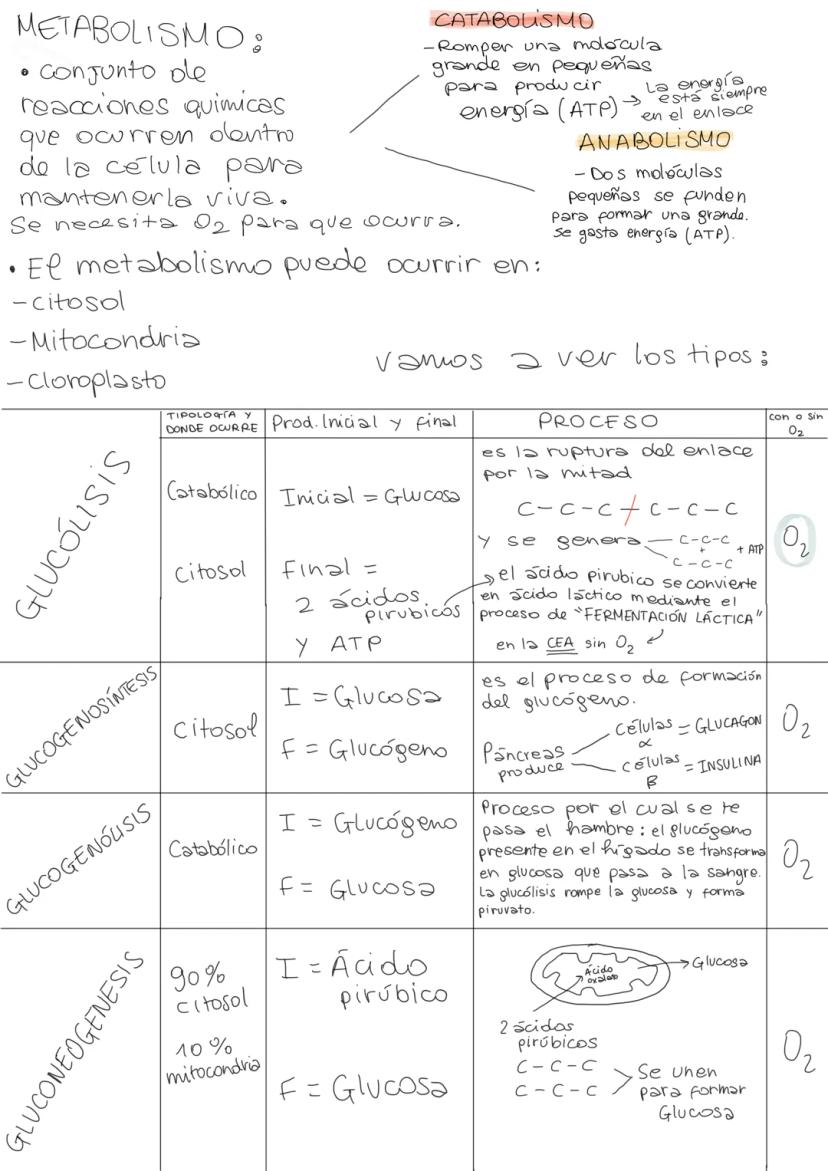 METABOLISMO:
• conjunto de
reacciones químicas
que ocurren dentro
de la célula para
mantenerla viva.
Se necesita O2 para que ocurra.
CATABOLISMO
- Romper una molécula
grande en pequeñas
para producir
energía (ATP) → La energía
está siempre
en el enlace
ANABOLISMO
- Dos moléculas
pequeñas se funden
para formar una grande.
Se gasta energía (ATP).
• El metabolismo puede ocurrir en:
- citosol
- Mitocondria
- Cloroplasto
vamos a ver los tipos:
TIPOLOGÍA Y
DONDE OCURRE
Prod. Inicial y final
PROCESO
con o sin
O2
GLUCÓLISIS
Catabólico
Citosol
Inicial = Glucosa
Final =
2 ácidos
pirúbicos
y ATP
es la ruptura del enlace
por la mitad
C-C-C/C-C-C
y se genera
C-C-C
+
C-C-C
+ ATP
el ácido pirubico se convierte
en ácido láctico mediante el
proceso de "FERMENTACIÓN LÁCTICA"
en la CEA sin O2
O2
GLUCOGENOSÍNTESIS
Citosol
I = Glucosa
F = Glucógeno
es el proceso de formación
del glucógeno.
Páncreas
produce
células = GLUCAGON
α
células = INSULINA
β
O2
GLUCOGENÓLISIS
Catabólico
I = Glucógeno
F = Glucosa
Proceso por el cual se te
pasa el hambre: el glucógeno
presente en el hígado se transforma
en glucosa que pasa a la sangre.
La glucólisis rompe la glucosa y forma
piruvato.
O2
GLUCONEOGENESIS
90%
citosol
10%
mitocondria
I = Ácido
pirúbico
F = Glucosa
Ácido
oxalato
→ Glucosa
2 ácidos
pirúbicos
C-C-C
C-C-C
Se unen
para formar
Glucosa
O2